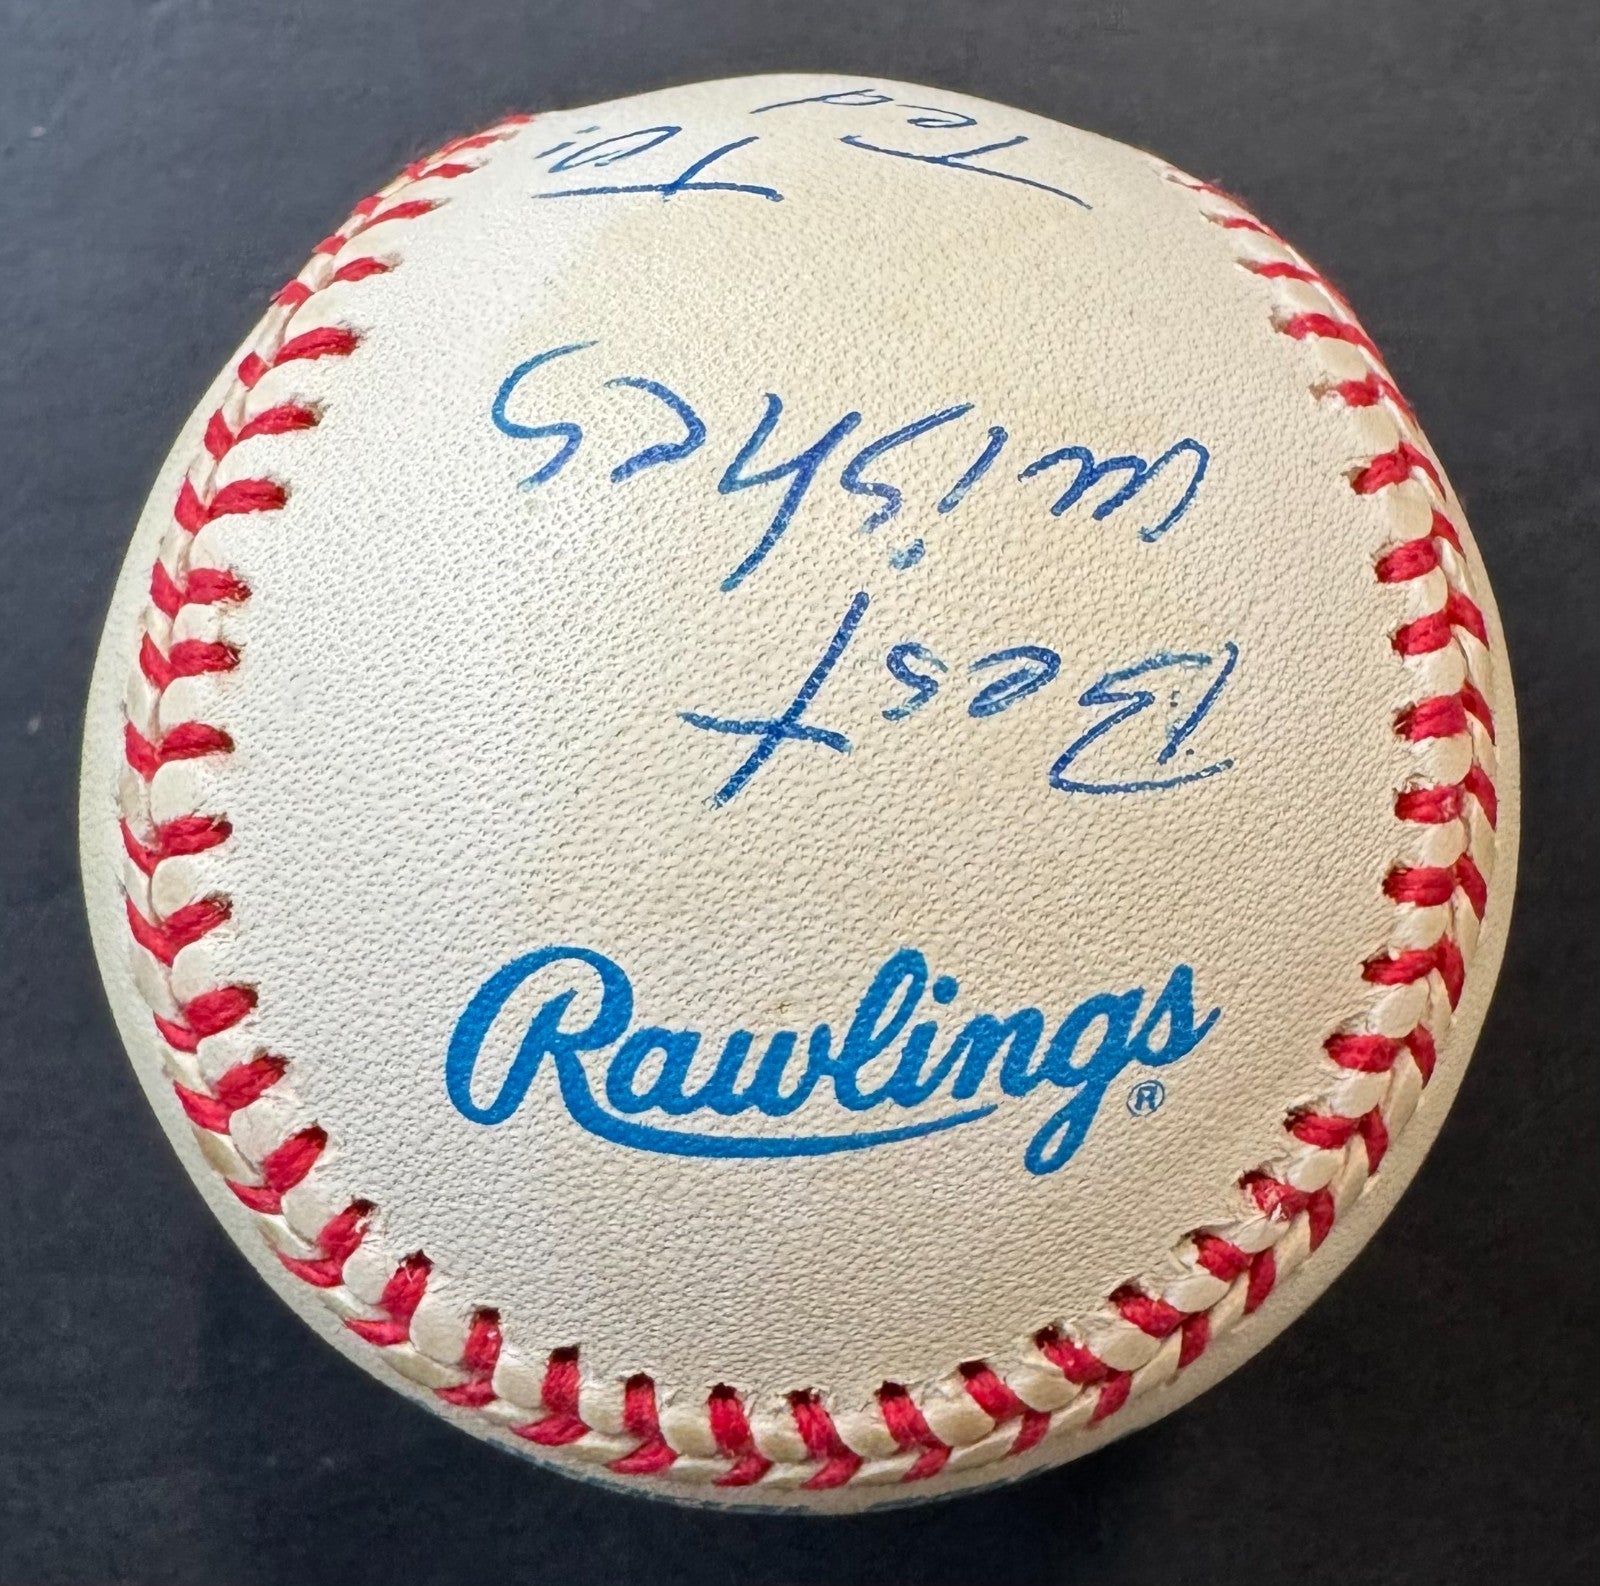 Best
wishes
Ted
Rawlings®